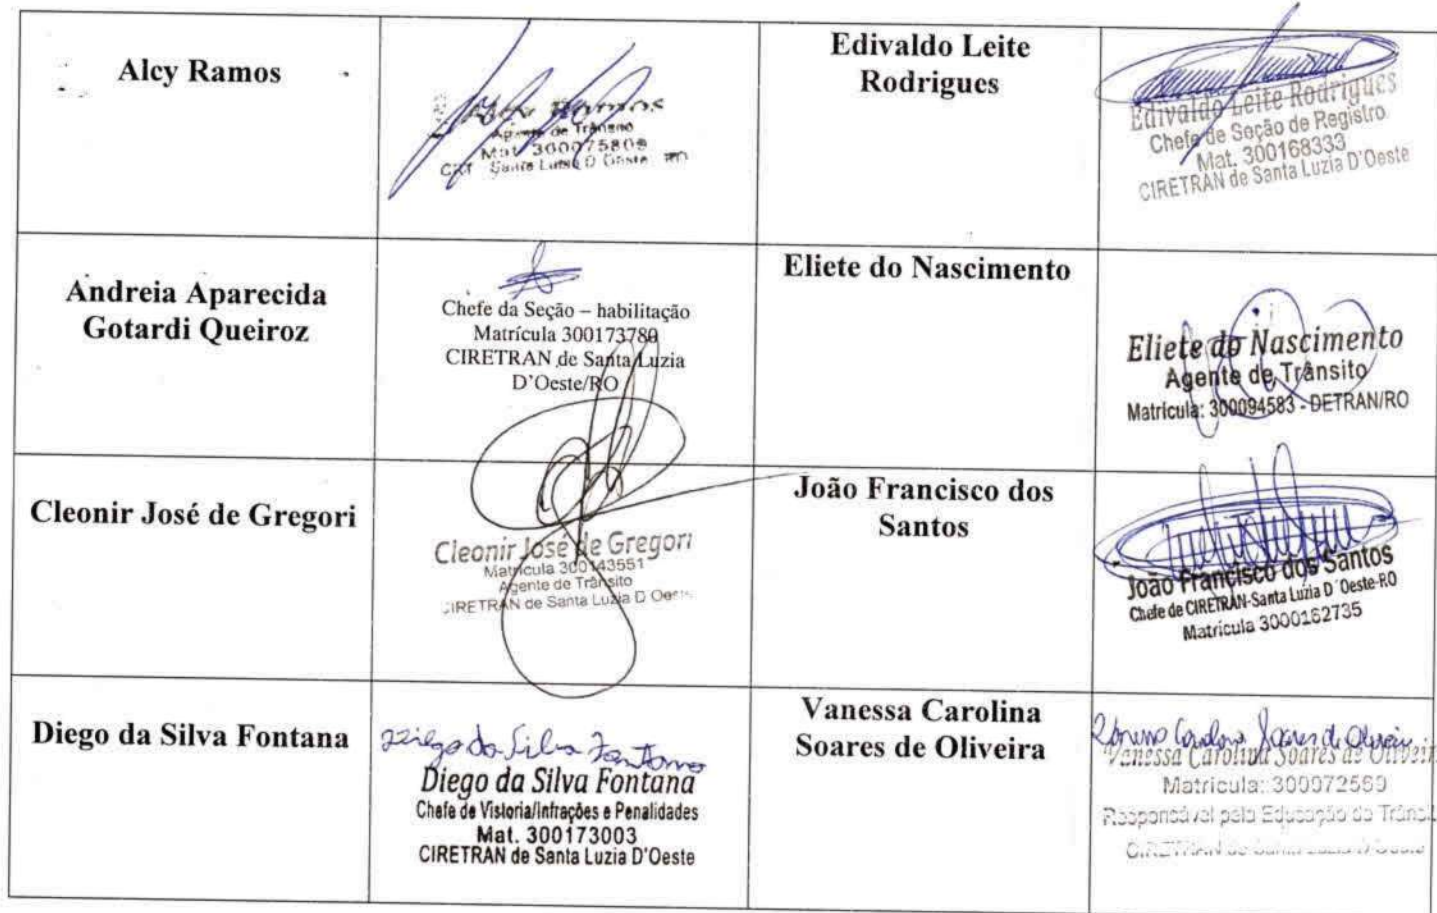 Alcy Ramos
Alcy Ramos
Agente de Trânsito
Mat. 300075809
Santa Luzia D Oeste RO
Edivaldo Leite
Rodrigues
Edivaldo Leite Rodrigues
Chefe de Seção de Registro
Mat. 300168333
CIRETRAN de Santa Luzia D'Oeste
Andreia Aparecida
Gotardi Queiroz
Chefe da Seção – habilitação
Matrícula 300173780
CIRETRAN de Santa Luzia
D'Oeste/RO
Eliete do Nascimento
Eliete do Nascimento
Agente de Trânsito
Matricula: 300094583 - DETRAN/RO
Cleonir José de Gregori
Cleonir José de Gregori
Matricula 300143551
Agente de Trânsito
CIRETRAN de Santa Luzia D Oeste
João Francisco dos
Santos
João Francisco dos Santos
Chefe de CIRETRAN-Santa Luzia D´Oeste-RO
Matricula 3000162735
Diego da Silva Fontana
Diego da Silva Fontana
Diego da Silva Fontana
Chefe de Vistoria/Infrações e Penalidades
Mat. 300173003
CIRETRAN de Santa Luzia D'Oeste
Vanessa Carolina
Soares de Oliveira
Vanessa Carolina Soares de Oliveira
Vanessa Carolina Soares de Oliveir
Matrícula: 300972569
Responsável pela Educação de Trânsi